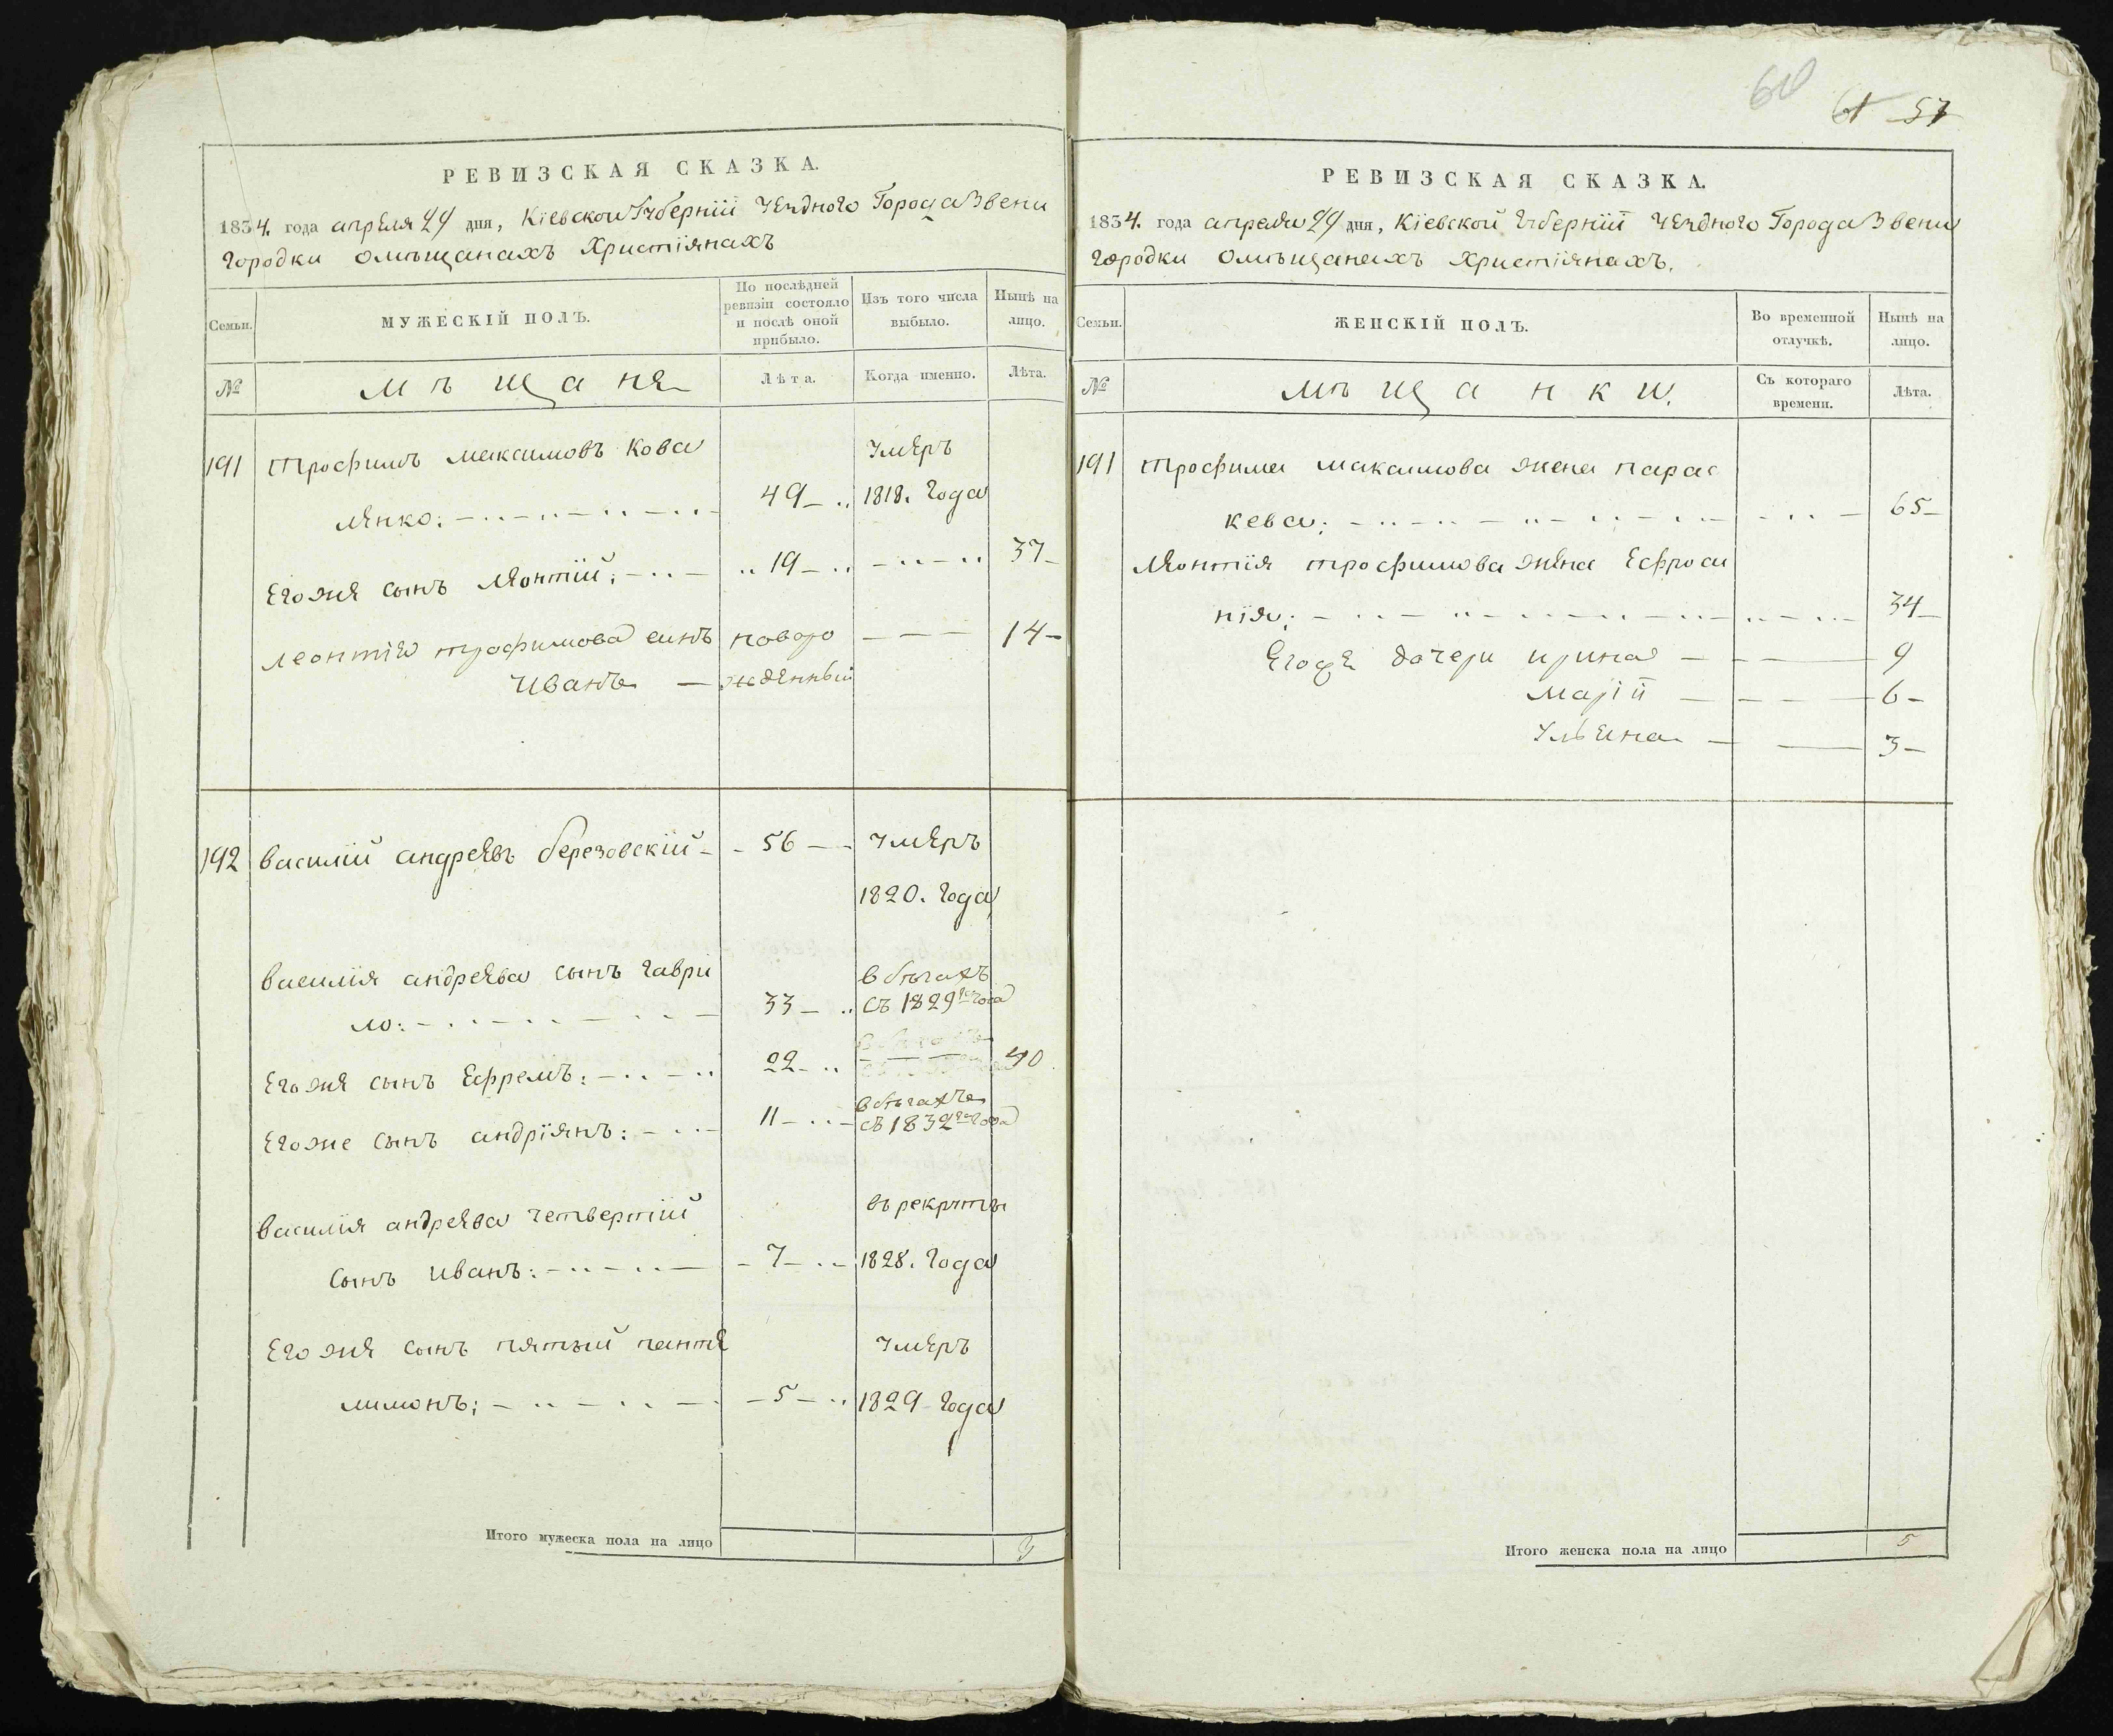 60
61 57
РЕВИЗСКАЯ СКАЗКА.
1834. года апреля 24 дня, Кіевской Губерніи Уезднаго Города Звени
городки омѣщанахъ Христіянахъ
Семьи.
МУЖЕСКІЙ ПОЛЪ.
По послѣдней ревизіи состояло и послѣ оной прибыло.
Изъ того числа выбыло.
Нынѣ на лицо.
№
мѣщане
Лѣта.
Когда именно.
Лѣта.
191 Трофимъ максимовъ Кова умеръ
лѣнко: 49 1818. года
Егоже сынъ Леонтій: 19 37
леонтія трофимова синъ новоро 14
иванъ жденный
192 василій андреевъ березовскій 56 умеръ
1820. года
василія андреева сынъ гаври в бѣгахъ
ло: 33 съ 1829го года
Егоже сынъ Ефремъ: 22 40
Егоже сынъ андріянъ: 11 в бѣгахъ
съ 1832го года
василія андреева четвертій въ рекруты
сынъ иванъ: 7 1828. года
Егоже сынъ пятый панте умеръ
лимонъ: 5 1829 года
Итого мужеска пола на лицо 3
РЕВИЗСКАЯ СКАЗКА.
1834. года апреля 24 дня, Кіевской Губерніи Уезднаго Города Звени
городки омѣщанахъ Христіянахъ.
Семьи.
ЖЕНСКІЙ ПОЛЪ.
Во временной отлучкѣ.
Нынѣ на лицо.
№
мѣщанки.
Съ котораго времени.
Лѣта.
191 Трофима максимова жена парас
кева: 65
Леонтія трофимова жена Ефроси
нія: 34
Егоже дочери ирина 9
маріи 6
Ульяна 3
Итого женска пола на лицо 5